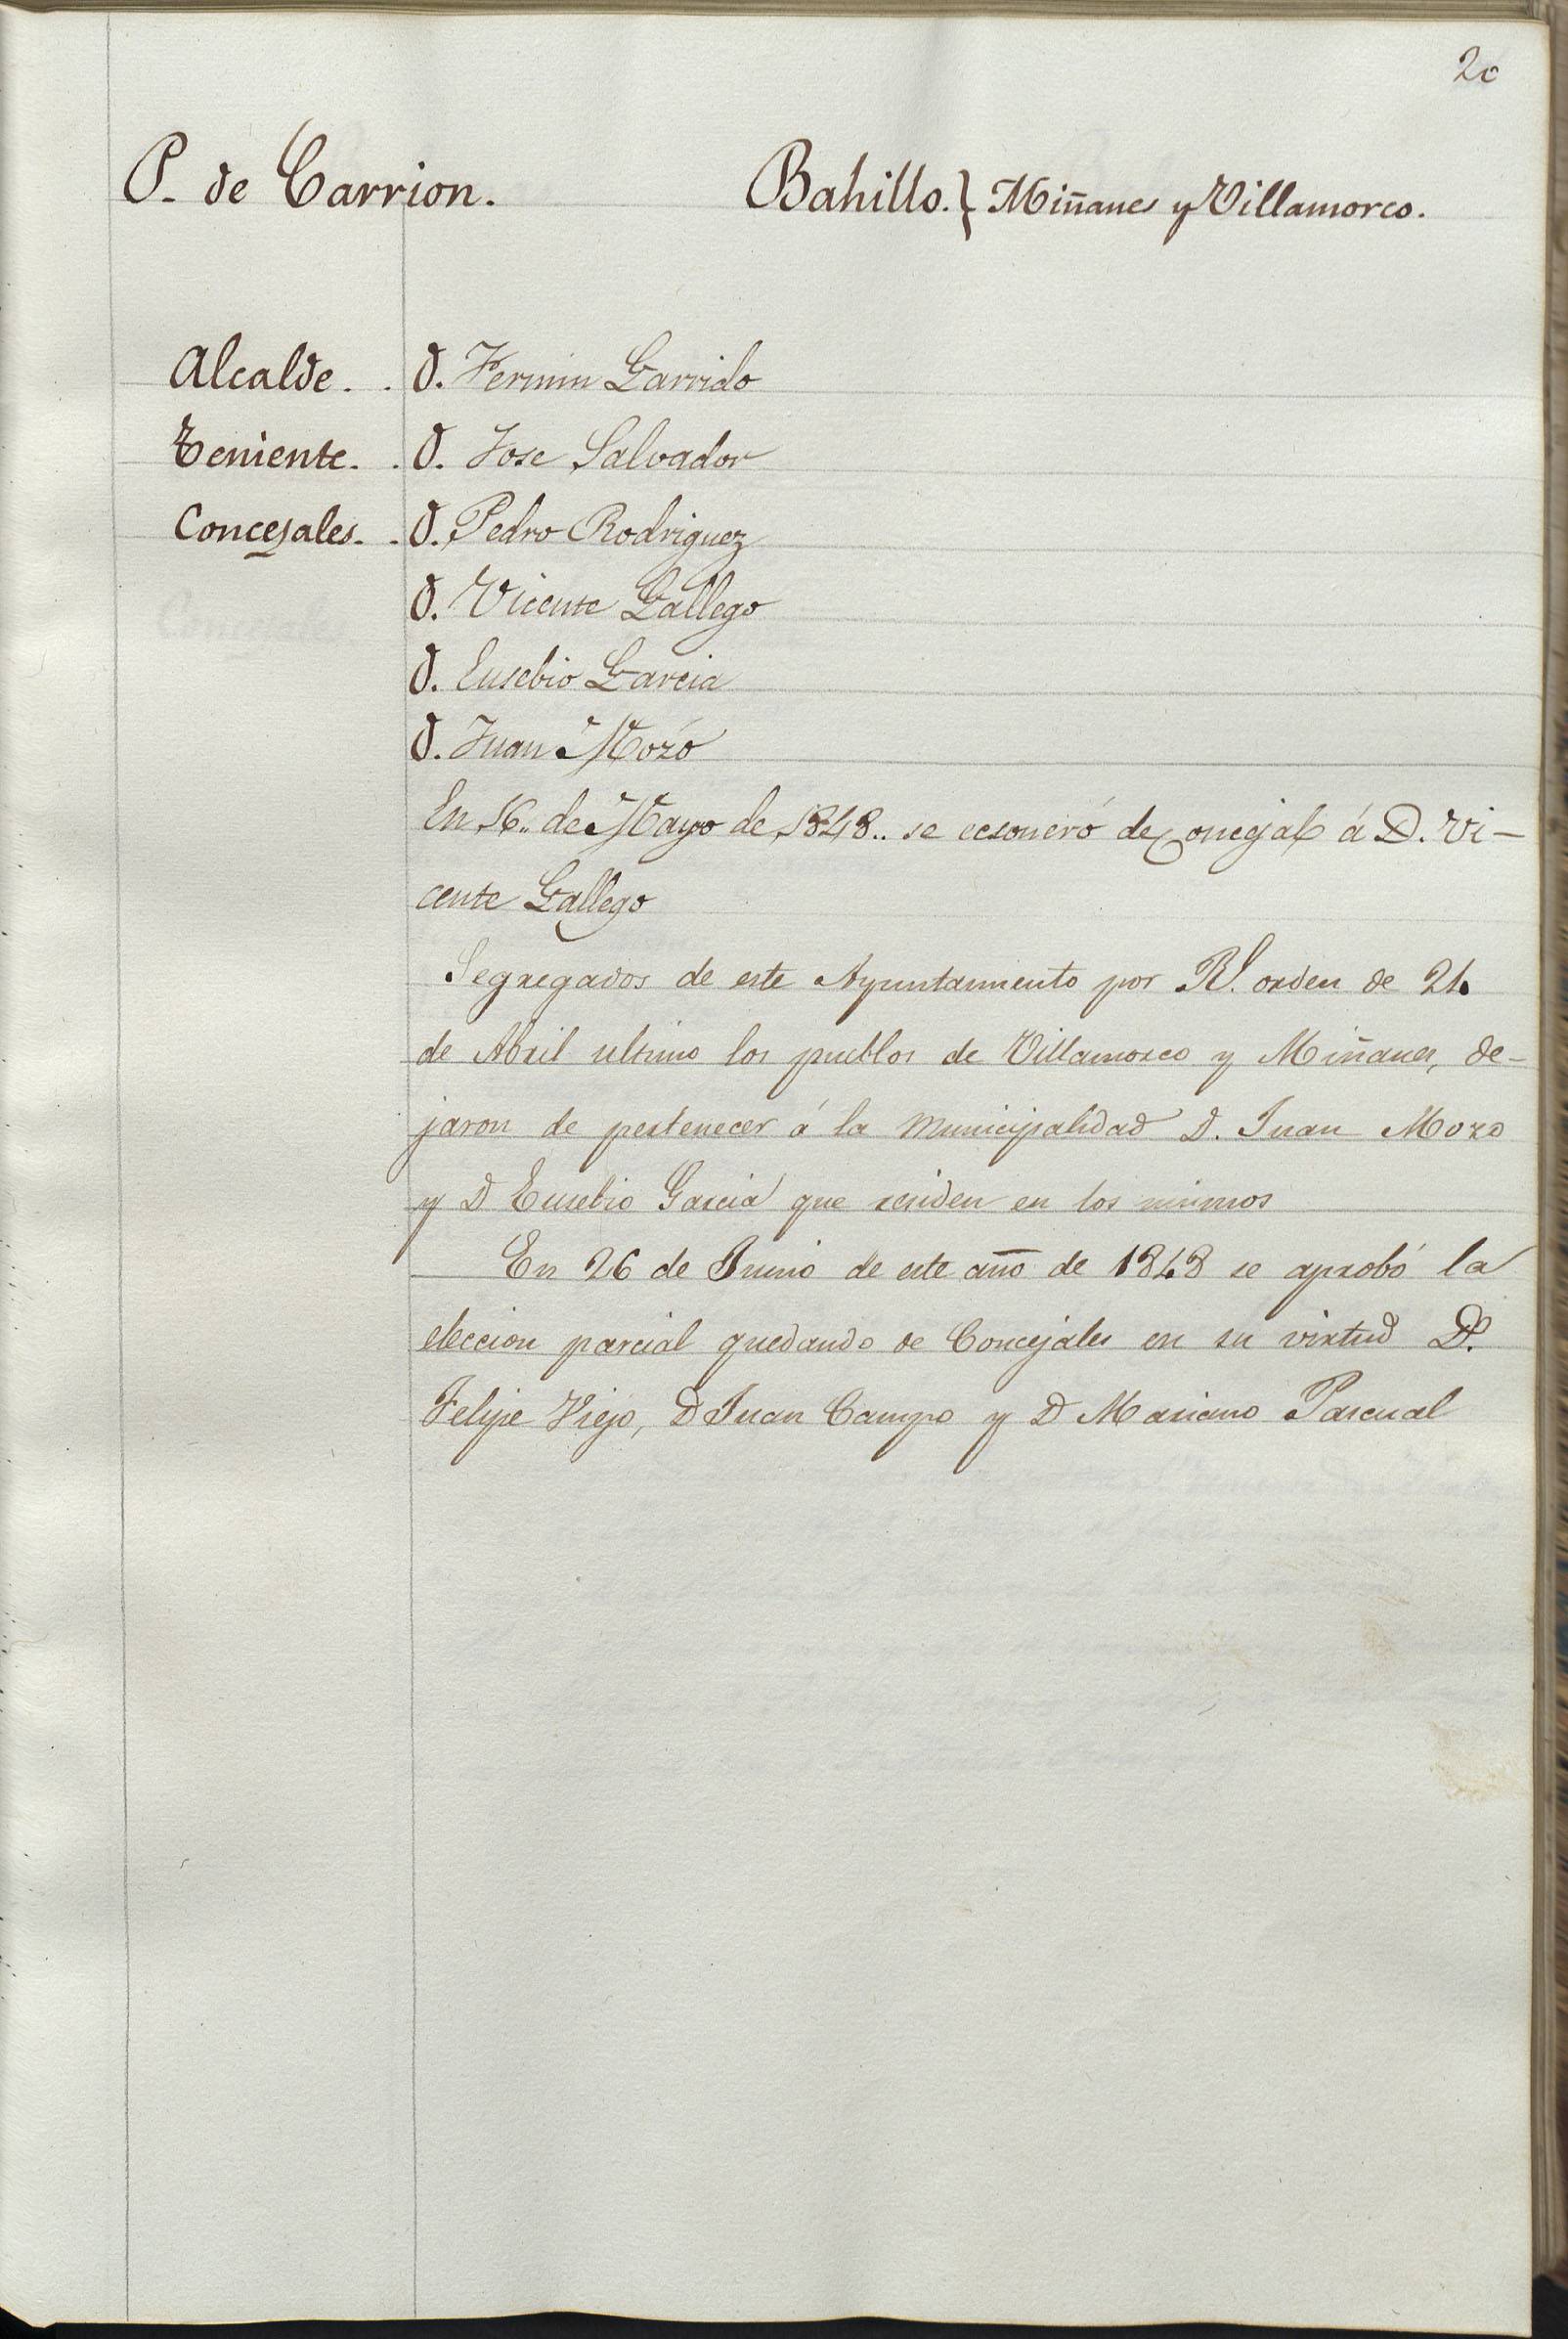 20
P. de Carrion.
Bahillo. } Miñanes y Villamorco.
Alcalde. . D. Fermin Garrido
Teniente. . D. Jose Salvador
Concejales. . D. Pedro Rodriguez
D. Vicente Gallego
D. Eusebio Garcia
D. Juan Mozo
En 16.. de Mayo de 1848.. se ecsoneró de Concejal á D. Vi-
cente Gallego
Segregados de este Ayuntamiento por Rl. orden de 21.
de Abril ultimo los pueblos de Villamorco y Miñanes, de-
jaron de pertenecer á la Municipalidad D. Juan Mozo
y D Eusebio Garcia que residen en los mismos
En 26 de Junio de este año de 1848 se aprobó la
eleccion parcial quedando de Concejales en su virtud D.
Felipe Viejo, D Juan Campo y D Mariano Pascual